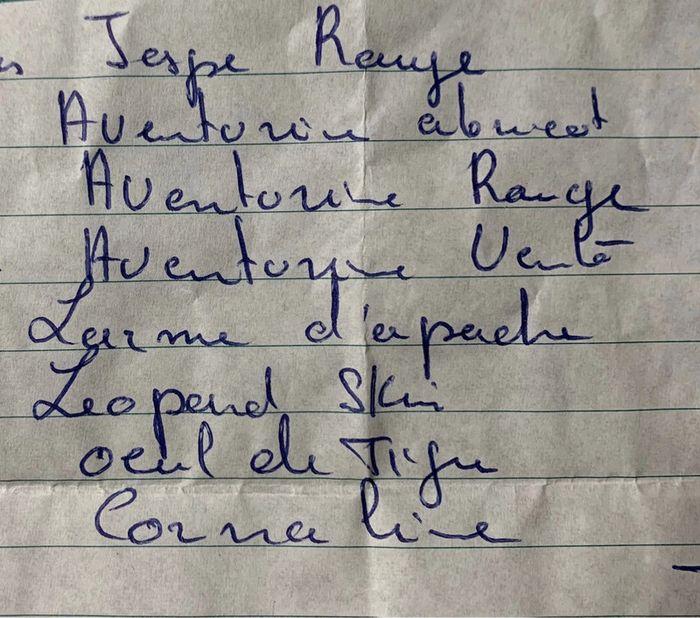 Jaspe Rouge
Aventurine
Aventurine Rouge
Aventurine Verte
Larme d'apache
Leopard Skin
oeul de Tigre
Cornaline